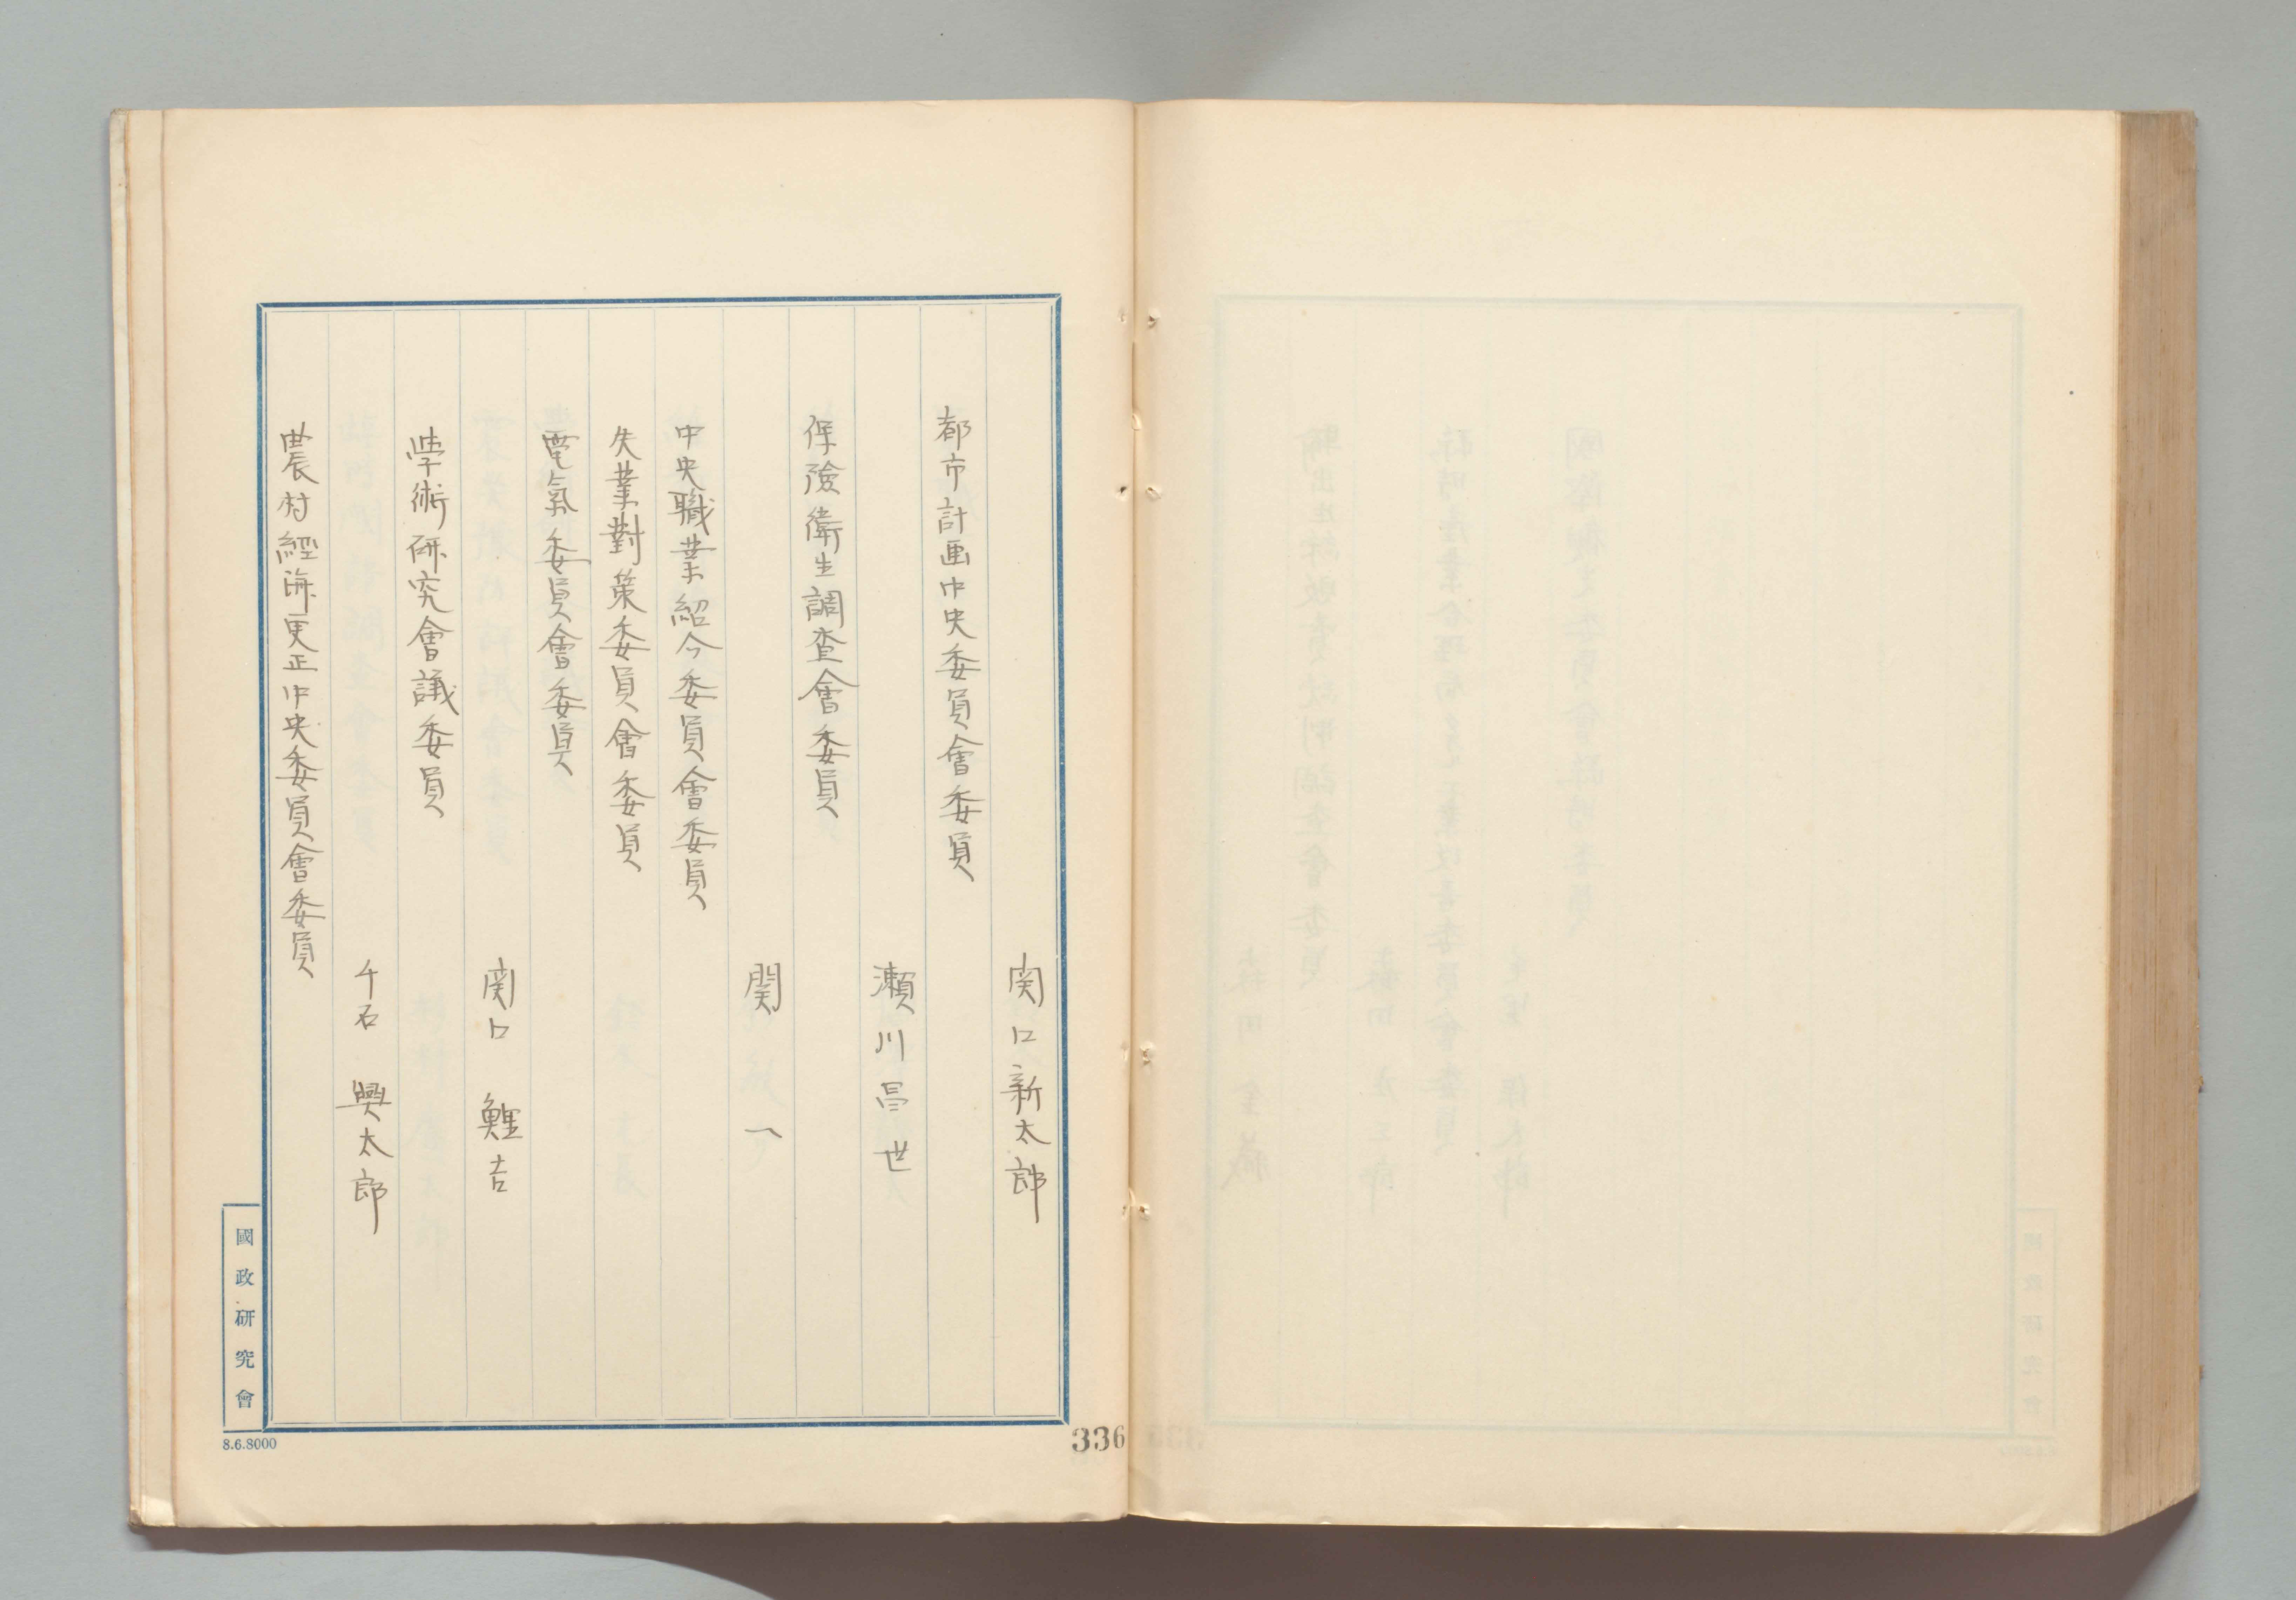 関口新太郎
都市計画中央委員會委員
瀬川昌世
保險衛生調査會委員
関 一
中央職業紹介委員會委員
失業對策委員會委員
電氣委員會委員
関口 鯉吉
學術研究會議委員
千石 興太郎
農村經済更正中央委員會委員
國政研究會
8.6.8000
336